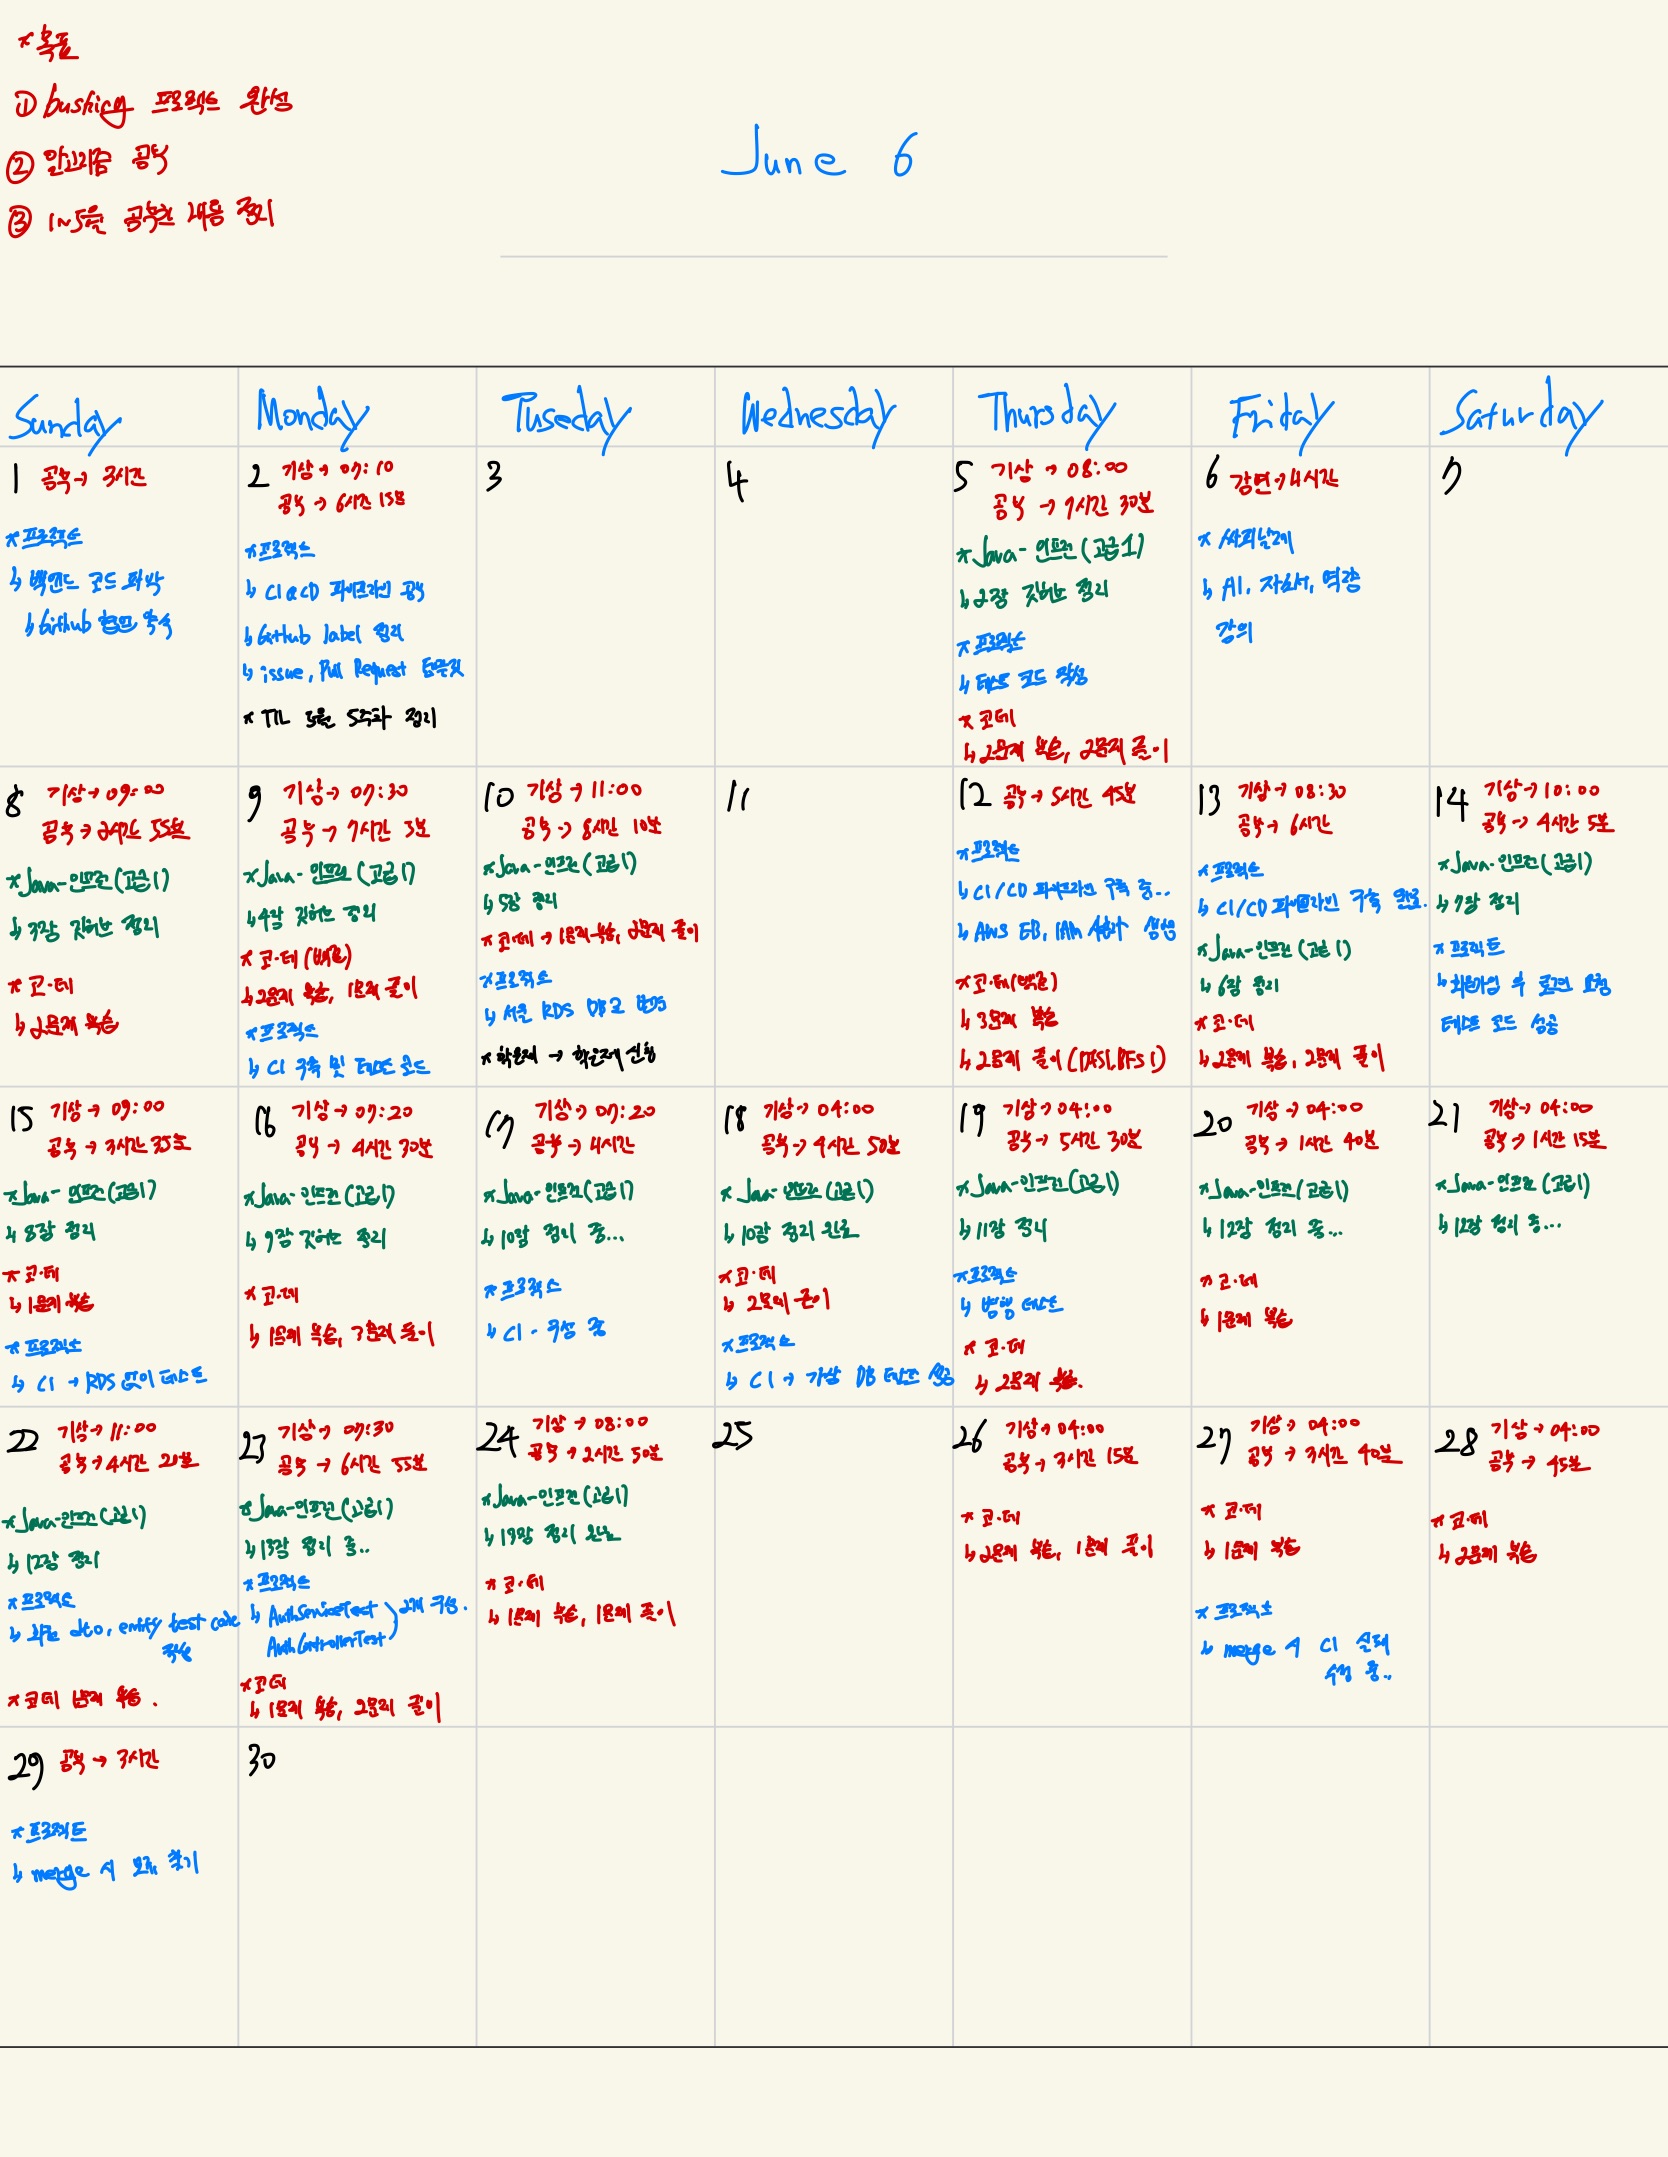 *목표
① busking 프로젝트 완성
② 알고리즘 공부
③ 1~5월 공부한 내용 정리
June 6
Sunday Monday Tuseday Wednesday Thursday Friday Saturday
1 공부→ 3시간
*프로젝트
↳ 백엔드 코드 파악
↳ Github 협업
2 기상→ 07:10
공부 → 6시간 15분
*프로젝트
↳ CI&CD 파이프라인 공부
↳ GitHub label 정리
↳ issue, Pull Request 템플릿
* TIL 5월 5주차 정리
3
4
5 기상 → 08:00
공부 → 7시간 30분
*Java-인프런(고급1)
↳2장 깃허브 정리
*프로젝트
↳ 테스트 코드 작성
*코테
↳2문제 복습, 2문제 풀이
6 강연→4시간
* 싸피날레
↳ AI, 자소서, 역량
강의
7
8 기상→ 09:00
공부→ 2시간 55분
*Java-인프런(고급1)
↳3장 깃허브 정리
*코테
↳2문제 복습
9 기상→ 07:30
공부→ 7시간 3분
*Java-인프런(고급1)
↳4장 깃허브 정리
*코테(백준)
↳2문제 복습, 1문제 풀이
*프로젝트
↳ CI 구축 및 테스트 코드
10 기상→11:00
공부→ 8시간 10분
*Java-인프런(고급1)
↳5장 정리
*코테→1문제 복습, 2문제 풀이
*프로젝트
↳ 서울 RDS DB로 변경
*학은제 → 학은제 신청
11
12 공부→ 5시간 45분
*프로젝트
↳ CI/CD 파이프라인 구축 중..
↳ AWS EB, IAM 생성
*코테(백준)
↳3문제 복습
↳2문제 풀이(DFS1,BFS1)
13 기상→08:30
공부→ 6시간
*프로젝트
↳CI/CD 파이프라인 구축 완료.
*Java-인프런(고급1)
↳6장 정리
*코테
↳2문제 복습, 2문제 풀이
14 기상→10:00
공부→ 4시간 5분
*Java-인프런(고급1)
↳7장 정리
*프로젝트
↳회원가입 후 로그인 요청
테스트 코드 성공
15 기상→ 09:00
공부→ 3시간 35분
*Java-인프런(고급1)
↳ 8장 정리
*코테
↳1문제 복습
*프로젝트
↳ CI → RDS 없이 테스트
16 기상→ 07:20
공부→ 4시간 30분
*Java-인프런(고급1)
↳9장 깃허브 정리
*코테
↳1문제 복습, 3문제 풀이
17 기상→ 07:20
공부→4시간
*Java-인프런(고급1)
↳10장 정리 중...
*프로젝트
↳CI - 구성 중
18 기상→ 04:00
공부→4시간 50분
*Java-인프런(고급1)
↳10장 정리 완료
*코테
↳ 2문제 풀이
*프로젝트
↳ CI → 가상 DB 테스트 성공
19 기상→04:00
공부→ 5시간 30분
*Java-인프런(고급1)
↳11장 정리
*프로젝트
↳ 병행 테스트
*코테
↳ 2문제 복습.
20 기상→04:00
공부→ 1시간 40분
*Java-인프런(고급1)
↳12장 정리 중...
*코테
↳1문제 복습
21 기상→ 04:00
공부→1시간 15분
*Java-인프런(고급1)
↳12장 정리 중...
22 기상→ 11:00
공부→4시간 20분
*Java-인프런(고급1)
↳12장 정리
*프로젝트
↳ 회원 dto, entity test code
작성
*코테 복습.
23 기상→ 07:30
공부→ 6시간 55분
*Java-인프런(고급1)
↳13장 정리 중..
*프로젝트
↳ AuthServiceTest 2개 구성.
AuthControllerTest
*코테
↳1문제 복습, 2문제 풀이
24 기상→ 08:00
공부→2시간 50분
*Java-인프런(고급1)
↳13장 정리 완료
*코테
↳ 1문제 복습, 1문제 풀이
25
26 기상→04:00
공부→ 3시간 15분
*코테
↳2문제 복습, 1문제 풀이
27 기상→ 04:00
공부→ 3시간 40분
*코테
↳1문제 복습
*프로젝트
↳ merge 시 CI 실패
수정 중..
28 기상→04:00
공부→ 45분
*코테
↳2문제 복습
29 공부→ 3시간
*프로젝트
↳ merge 시 오류 찾기
30